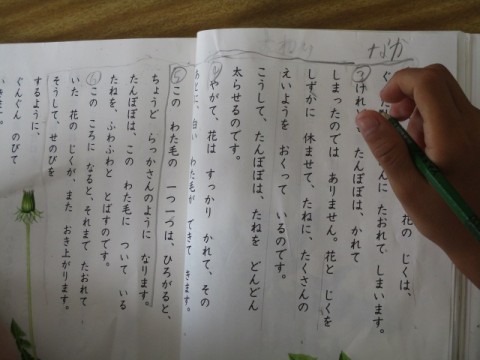 なか
花の じくは、
たおれて しまいます。
③ たんぽぽは、かれて
しまったのでは ありません。花と じくを
しずかに 休ませて、たねに、たくさんの
えいようを おくって いるのです。
こうして、たんぽぽは、たねを どんどん
太らせるのです。
④ やがて、花は すっかり かれて、その
あとに、白い わた毛が できて きます。
⑤ この わた毛の 一つ一つは、ひろがると、
ちょうど らっかさんのように なります。
たんぽぽは、この わた毛に ついて いる
たねを、ふわふわと とばすのです。
⑥ この ころに なると、それまで たおれて
いた 花の じくが、また おき上がります。
そうして、せのびを
するように、
ぐんぐん のびて